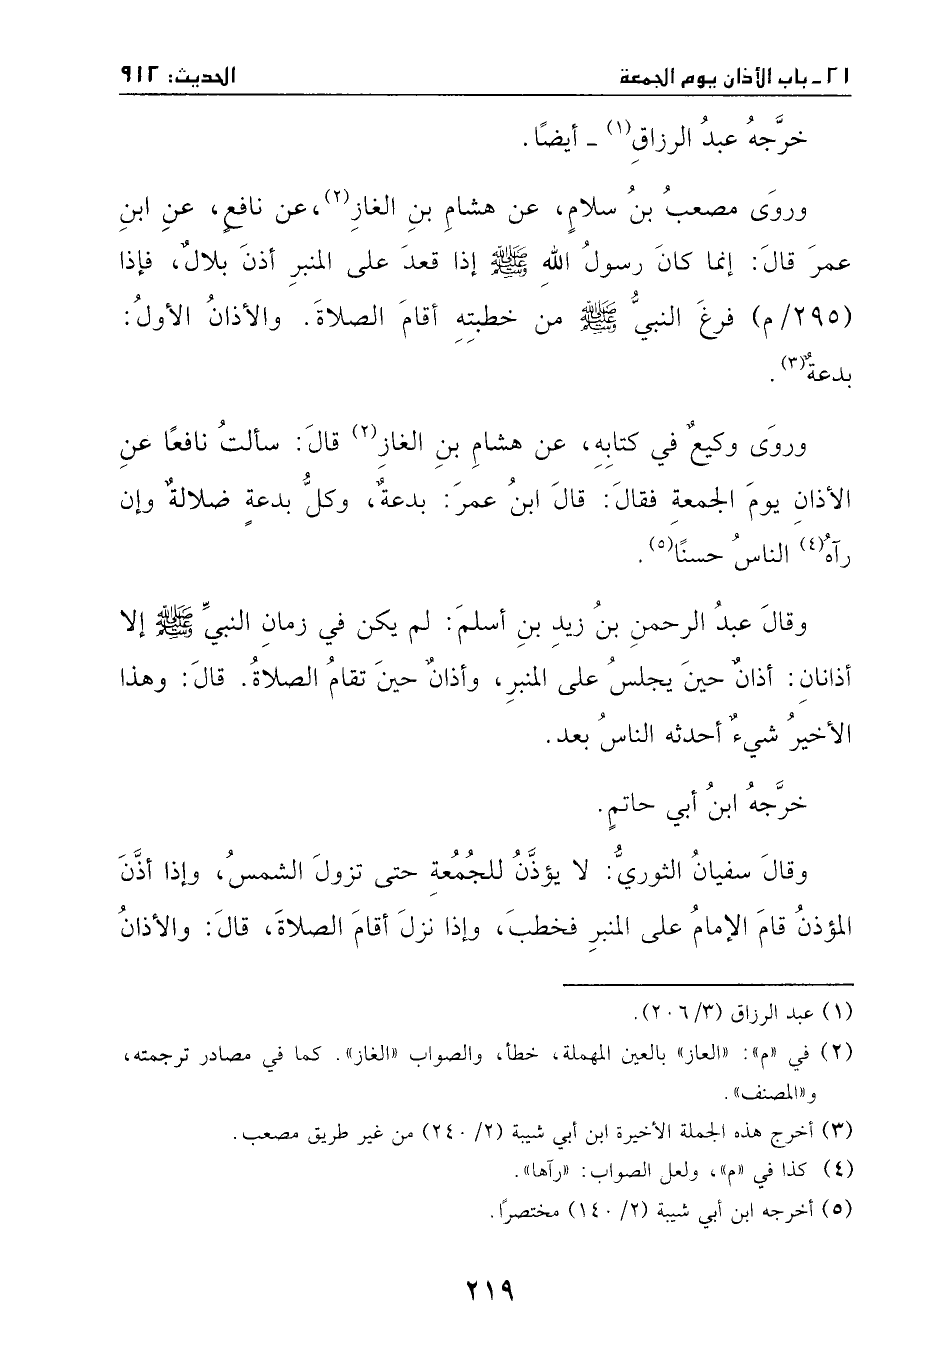 ٢١ ـ باب الأذان يوم الجمعة الحديث: ٩١٢
خرَّجهُ عبدُ الرزاقِ(١) ـ أيضًا.
وروَى مصعبُ بنُ سلامٍ، عن هشامِ بنِ الغازِ(٢)،عن نافعٍ، عنِ ابنِ
عمرَ قالَ: إنما كانَ رسولُ اللهِ ﷺ إذا قعدَ على المنبرِ أذنَ بلالٌ، فإذا
(٢٩٥/م) فرغَ النبيُّ ﷺ من خطبتِهِ أقامَ الصلاةَ. والأذانُ الأولُ:
بدعةٌ(٣).
وروَى وكيعٌ في كتابِهِ، عن هشامِ بنِ الغازِ(٢) قالَ: سألتُ نافعًا عنِ
الأذانِ يومَ الجمعةِ فقالَ: قالَ ابنُ عمرَ: بدعةٌ، وكلُّ بدعةٍ ضلالةٌ وإن
رآهُ(٤) الناسُ حسنًا(٥).
وقالَ عبدُ الرحمنِ بنُ زيدِ بنِ أسلمَ: لم يكن في زمانِ النبيِّ ﷺ إلا
أذانانِ: أذانٌ حينَ يجلسُ على المنبرِ، وأذانٌ حينَ تقامُ الصلاةُ. قالَ: وهذا
الأخيرُ شيءٌ أحدثه الناسُ بعد.
خرَّجهُ ابنُ أبي حاتمٍ.
وقالَ سفيانُ الثوريُّ: لا يؤذَّنُ للجُمُعةِ حتى تزولَ الشمسُ، وإذا أذَّنَ
المؤذنُ قامَ الإمامُ على المنبرِ فخطبَ، وإذا نزلَ أقامَ الصلاةَ، قالَ: والأذانُ
(١) عبد الرزاق (٣/ ٢٠٦).
(٢) في «م»: «العاز» بالعين المهملة، خطأ، والصواب «الغاز». كما في مصادر ترجمته،
و«المصنف».
(٣) أخرج هذه الجملة الأخيرة ابن أبي شيبة (٢/ ٢٤٠) من غير طريق مصعب.
(٤) كذا في «م»، ولعل الصواب: «رآها».
(٥) أخرجه ابن أبي شيبة (٢/ ١٤٠) مختصرًا.
٢١٩